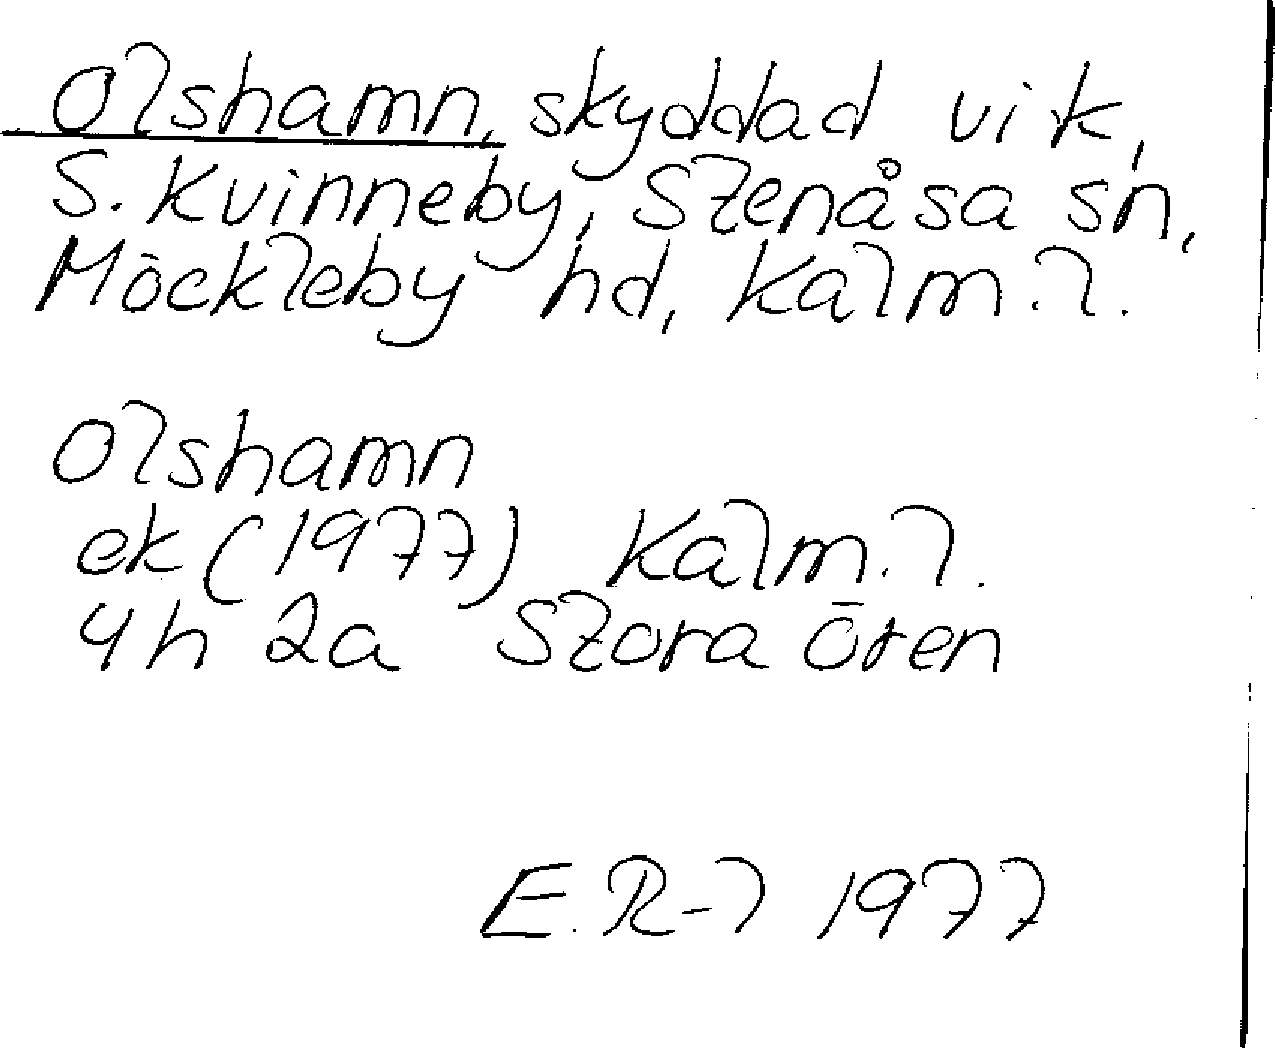 Olshamn, skyddad vik,
S. Kvinneby, Stenåsa sn,
Möckleby hd, Kalm. l.
Olshamn
ek (1977) Kalm. l.
4h 2a Stora Ören
E. R-l 1977